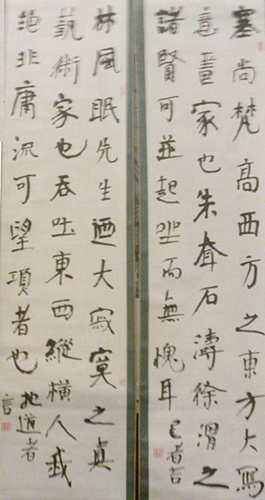 塞尚梵高西方之東方大寫
意畫家也朱耷石濤徐渭之
諸賢可並起坐而無愧耳
林風眠先生迺大寂寞之真
藝術家也吞吐東西縱橫人
絕非庸流可望項者也